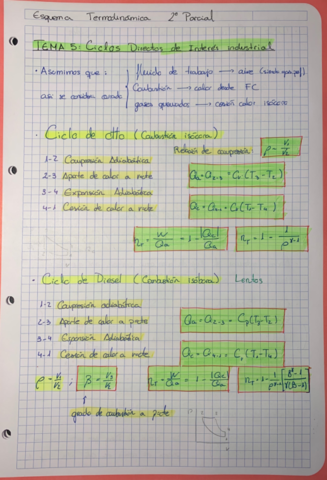 Esquema Termodinámica 2º Parcial
TEMA 5: Ciclos Directos de Interés industrial
· Asumimos que: fluido de trabajo → aire
Combustión → calor desde FC
así se considera cerrado
gases quemados → cesión calor isócoro
· Ciclo de Otto (Combustión isócora)
Relación de compresión: ρ = V₁/V₂
1-2 Compresión Adiabática
2-3 Aporte de calor a v=cte Qa = Q₂₋₃ = Cv (T₃-T₂)
3-4 Expansión Adiabática
4-1 Cesión de calor a v=cte Qc = Q₄₋₁ = Cv (T₁-T₄)
ηT = W/Qa = 1 - |Qc|/Qa ηT = 1 - 1/ρ^(γ-1)
· Ciclo de Diesel (Combustión isóbara) Lentos
1-2 Compresión adiabática
2-3 Aporte de calor a p=cte Qa = Q₂₋₃ = Cp (T₃-T₂)
3-4 Expansión Adiabática
4-1 Cesión de calor a v=cte Qc = Q₄₋₁ = Cv (T₁-T₄)
ρ = V₁/V₂ ; β = V₃/V₂ ηT = W/Qa = 1 - |Qc|/Qa ηT = 1 - 1/ρ^(γ-1) [β^γ - 1 / γ(β-1)]
grado de combustión a p=cte